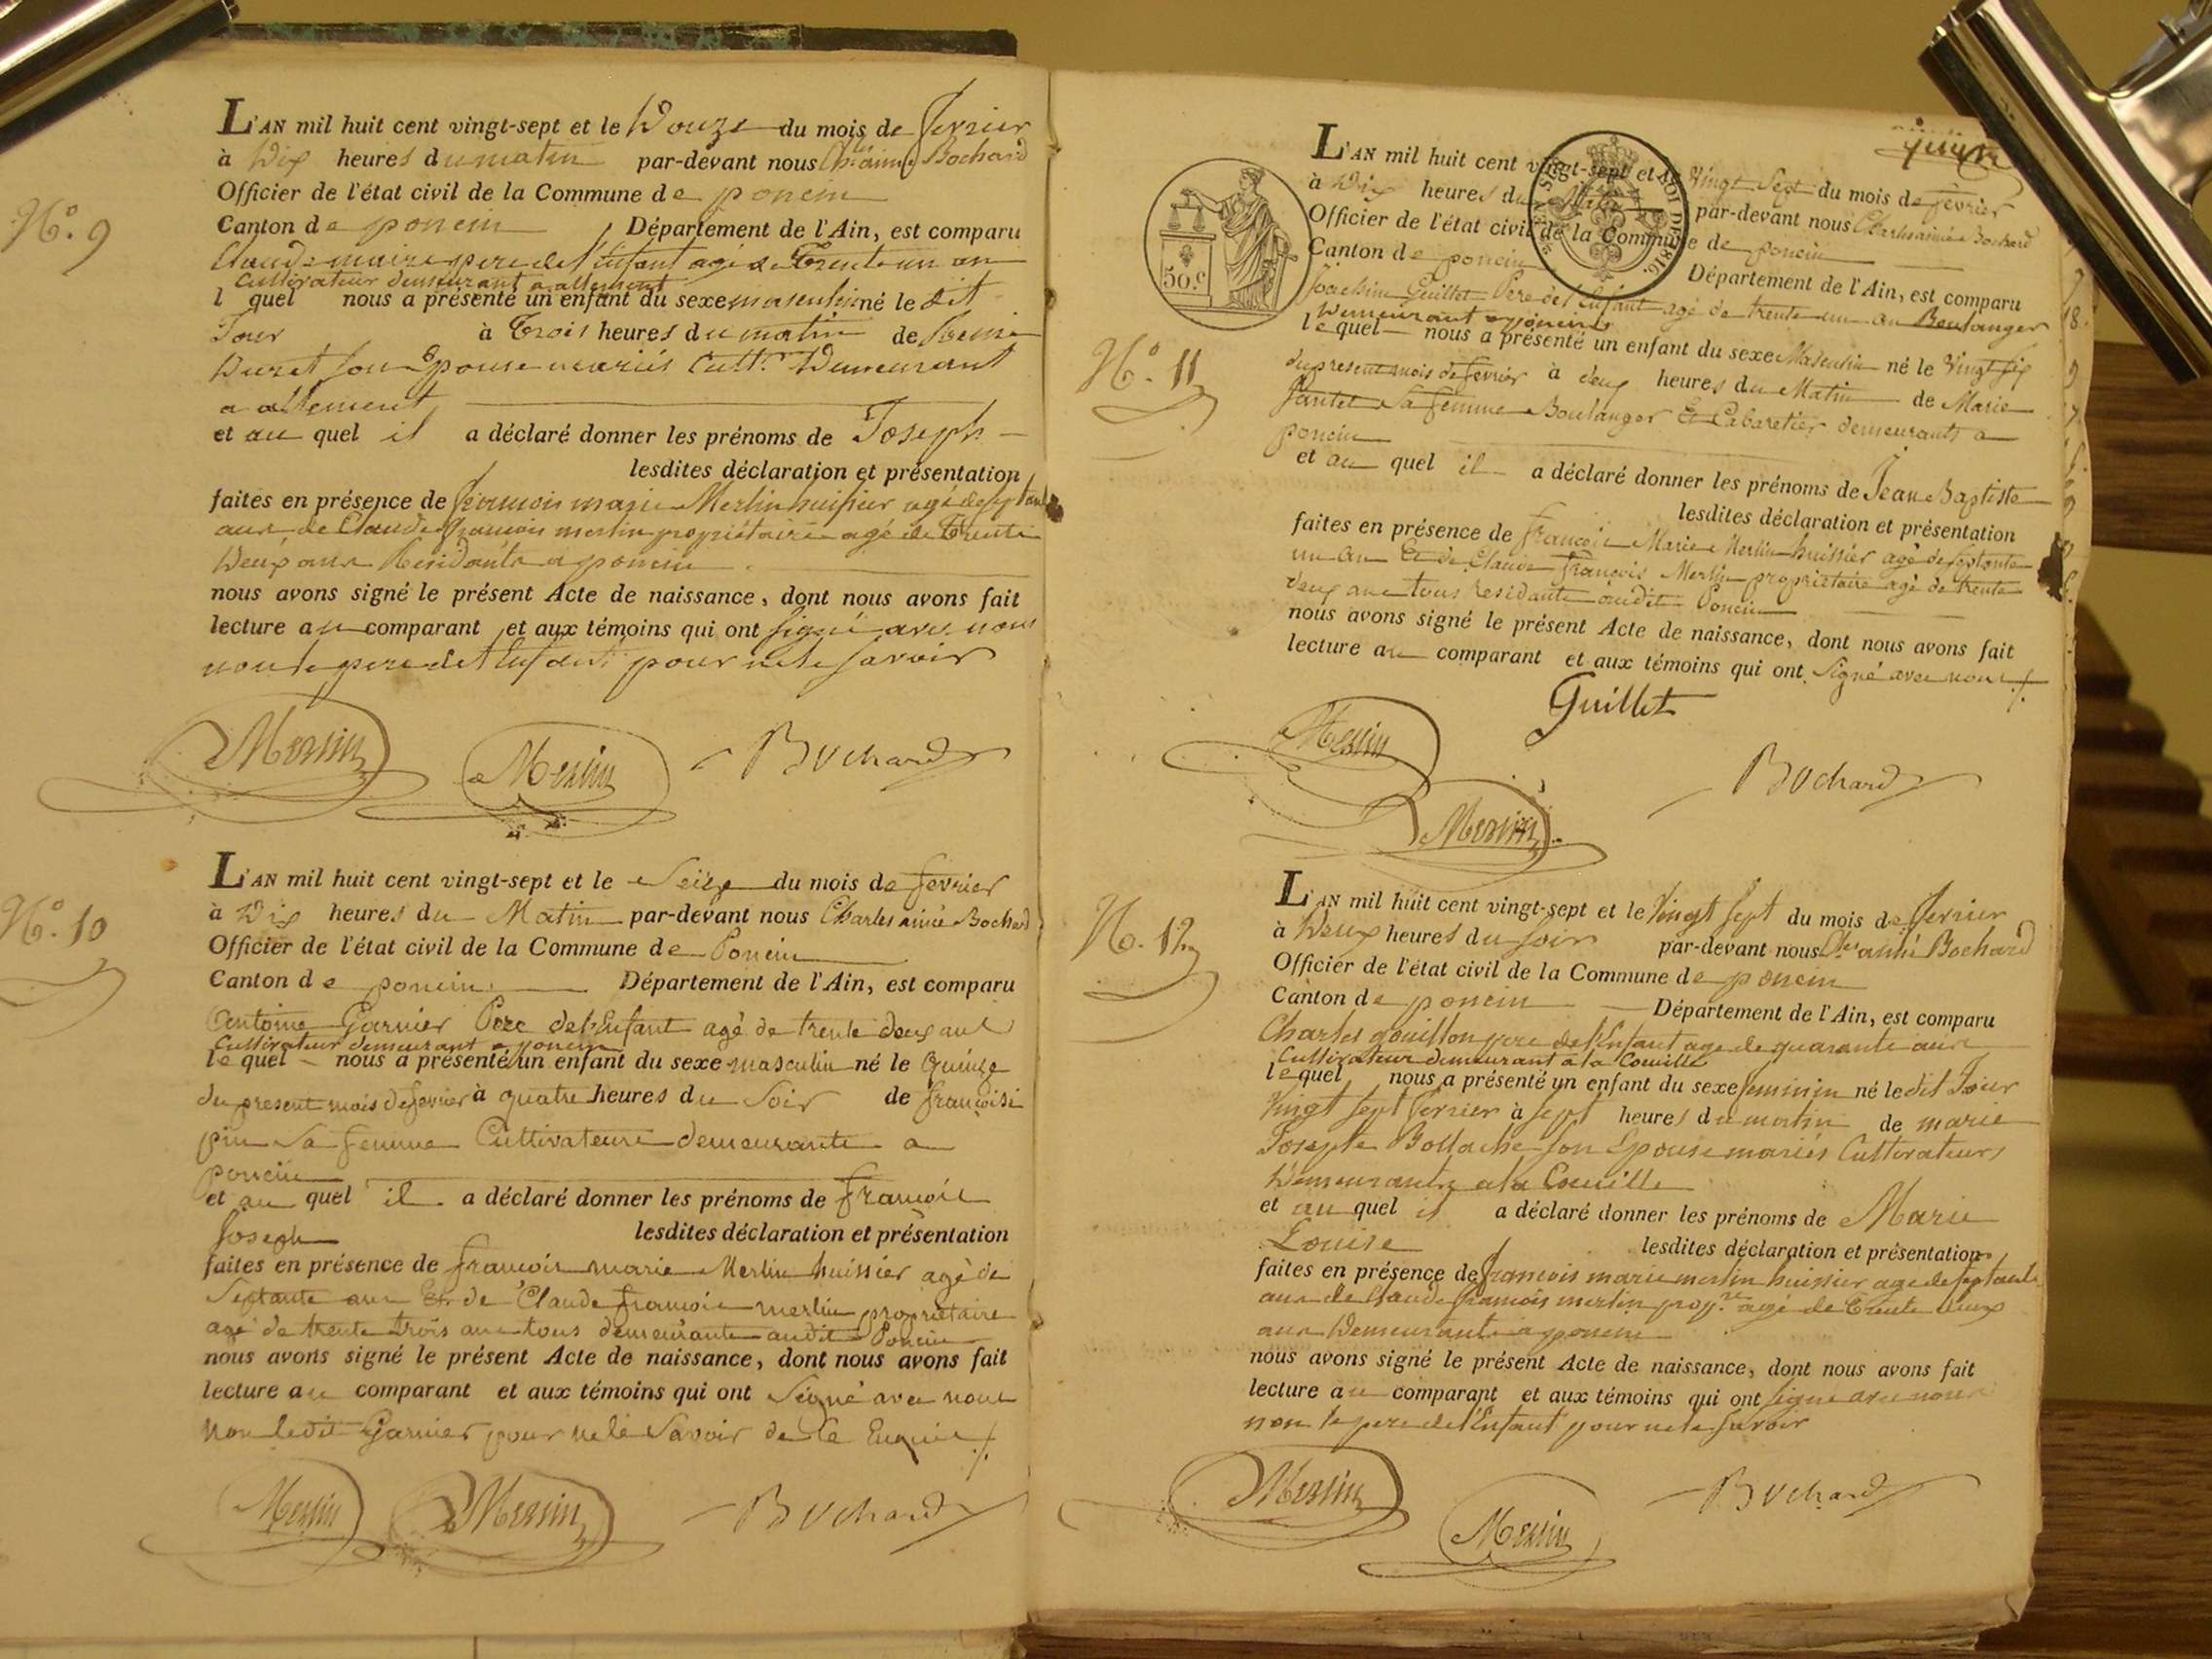 L'AN mil huit cent vingt-sept et le Douze du mois de fevrier
à Dix heures du matin par-devant nous Ch.les aimé Bochard
Officier de l'état civil de la Commune de poncin
N.° 9
Canton de poncin Département de l'Ain, est comparu
Claude maire pere de l'Enfant agé de Trente un an
Cultivateur demeurant a allement
l quel nous a présenté un enfant du sexe masculin né le dit
Jour à Trois heures du matin de
Duret son Epouse mariés Cult.rs Demeurant
a allement
et au quel il a déclaré donner les prénoms de Joseph
lesdites déclaration et présentation
faites en présence de francois marie Merlin huissier agé de septante
ans de Claude francois merlin propriétaire agé de Trente
Deux ans Residants a poncin
nous avons signé le présent Acte de naissance, dont nous avons fait
lecture au comparant et aux témoins qui ont signé avec nous
non le pere de l'Enfant pour ne le savoir
Merlin Merlin Bochard
L'AN mil huit cent vingt-sept et le Seize du mois de fevrier
à Dix heures du Matin par-devant nous Charles aimé Bochard
N.° 10
Officier de l'état civil de la Commune de Poncin
Canton de poncin Département de l'Ain, est comparu
Antoine Garnier Pere de l'Enfant agé de trente deux ans
Cultivateur demeurant a poncin
le quel nous a présenté un enfant du sexe masculin né le Quinze
du present mois de fevrier à quatre heures du Soir de françoise
pin Sa femme Cultivateurs demeurants a
Poncin
et au quel il a déclaré donner les prénoms de francois
Joseph lesdites déclaration et présentation
faites en présence de francois marie Merlin huissier agé de
Septante ans Et de Claude francois merlin propriétaire
agé de trente trois ans tous demeurants audit Poncin
nous avons signé le présent Acte de naissance, dont nous avons fait
lecture au comparant et aux témoins qui ont Signé avec nous
Non ledit Garnier pour ne le Savoir de ce Enquis
Merlin Merlin Bochard
L'AN mil huit cent vingt-sept et le Vingt Sept du mois de fevrier
à Dix heures du Matin par-devant nous Charles aimé Bochard
Officier de l'état civil de la Commune de poncin
50.c
Canton de poncin Département de l'Ain, est comparu
Joachim Guillet Pere de l'Enfant agé de trente un an Boulanger
Demeurant a poncin
N.° 11
le quel nous a présenté un enfant du sexe Masculin né le Vingt six
du present mois de fevrier à deux heures du Matin de Marie
Sa femme Boulanger Et Cabaretier demeurants a
poncin
et au quel il a déclaré donner les prénoms de Jean Baptiste
lesdites déclaration et présentation
faites en présence de francois Marie Merlin huissier agé de septante
un an Et de Claude francois Merlin propriétaire agé de trente
deux ans tous residants audit Poncin
nous avons signé le présent Acte de naissance, dont nous avons fait
lecture au comparant et aux témoins qui ont Signé avec nous
Guillet
Merlin Bochard
Merlin
L'AN mil huit cent vingt-sept et le Vingt Sept du mois de fevrier
N.° 12
à Deux heures du soir par-devant nous Ch.les aimé Bochard
Officier de l'état civil de la Commune de poncin
Canton de poncin Département de l'Ain, est comparu
Charles gouillon pere de l'Enfant age de quarante ans
Cultivateur demeurant a la Coueille
le quel nous a présenté un enfant du sexe feminin né le dit Jour
Vingt sept fevrier à sept heures du matin de marie
Josephe Bollache son Epouse mariés Cultivateurs
Demeurants a la Coueille
et au quel il a déclaré donner les prénoms de Marie
Louise lesdites déclaration et présentation
faites en présence de francois marie merlin huissier age de septante
ans de Claude francois merlin prop.re agé de Trente deux
ans Demeurants a poncin
nous avons signé le présent Acte de naissance, dont nous avons fait
lecture au comparant et aux témoins qui ont signe avec nous
non le pere de l'Enfant pour ne le savoir
Merlin Merlin Bochard